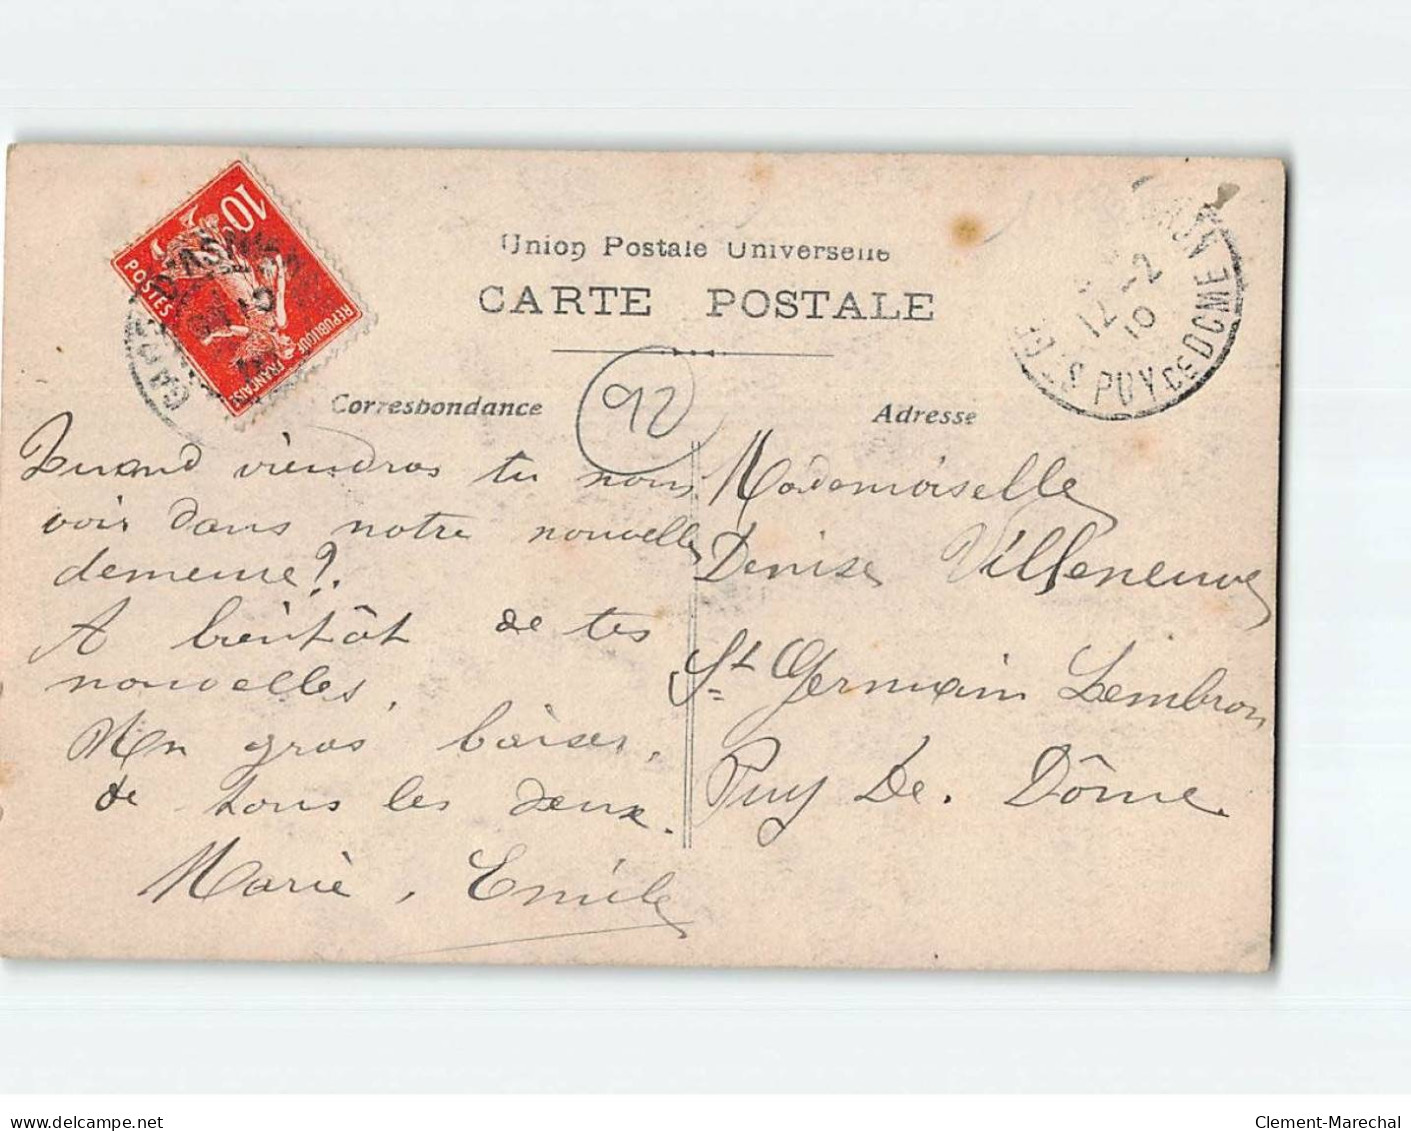 Union Postale Universelle
CARTE POSTALE
Correspondance
92
Adresse
10
POSTES
REPUBLIQUE FRANÇAISE
D'ASNI
12 -2
10
PUY DE DOME
Quand viendras tu nous
voir dans notre nouvelle
demeure?.
A bientôt de tes
nouvelles.
Un gros baiser.
de tous les deux.
Marie, Emile
Mademoiselle
Denise Villeneuve
St Germain Lembron
Puy De. Dôme.
delcampe.net
Clement-Marechal